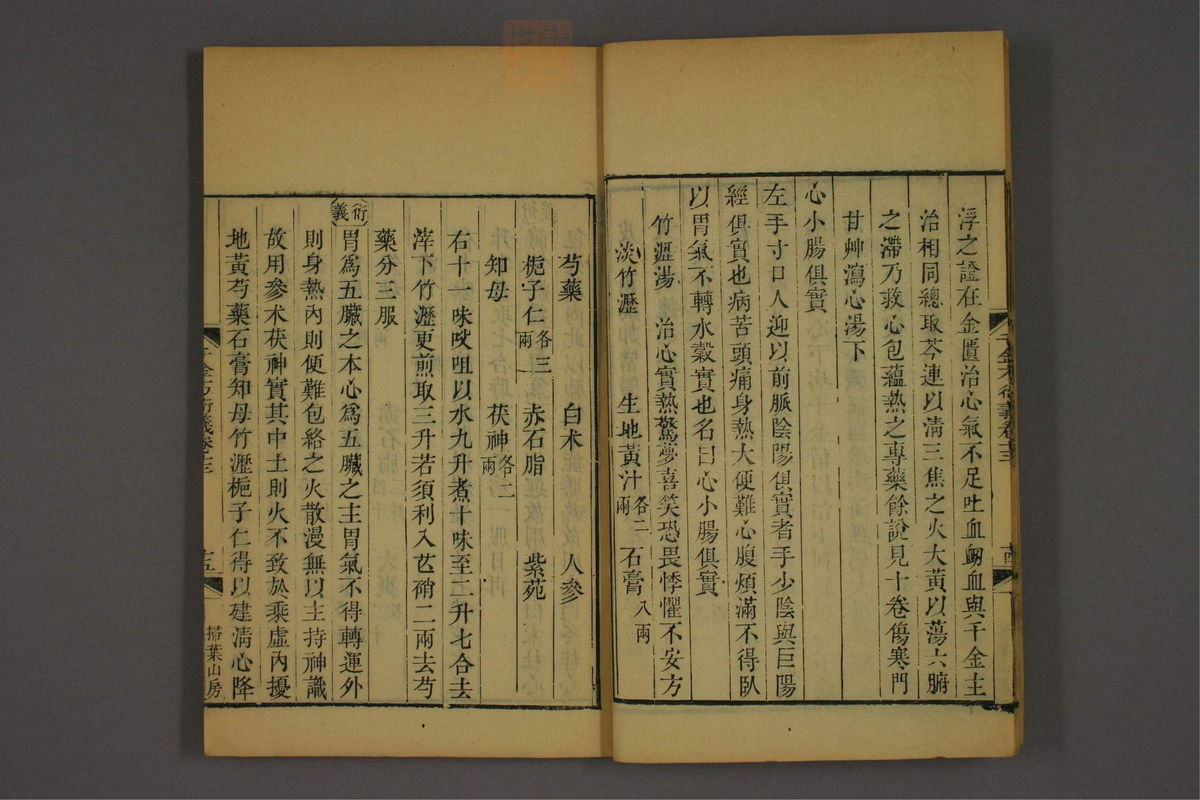 浮之證在金匱治心氣不足吐血衂血與千金主
治相同總取芩連以清三焦之火大黃以蕩六腑
之滯乃救心包蘊熱之專藥餘說見十卷傷寒門
甘艸瀉心湯下
心小腸俱實
左手寸口人迎以前脈陰陽俱實者手少陰與巨陽
經俱實也病苦頭痛身熱大便難心腹煩滿不得臥
以胃氣不轉水穀實也名曰心小腸俱實
竹瀝湯 治心實熱驚夢喜笑恐畏悸懼不安方
淡竹瀝 生地黃汁各二兩 石膏八兩
芍藥 白术 人參
梔子仁各三兩 赤石脂 紫苑
知母 茯神各二兩
右十一味㕮咀以水九升煮十味至二升七合去
滓下竹瀝更煎取三升若須利入芒硝二兩去芍
藥分三服
衍義
胃為五臟之本心為五臟之主胃氣不得轉運外
則身熱內則便難包絡之火散漫無以主持神識
故用參术茯神實其中土則火不致於乘虛內擾
地黃芍藥石膏知母竹瀝梔子仁得以建清心降
千金方衍義卷十三
十五
掃葉山房